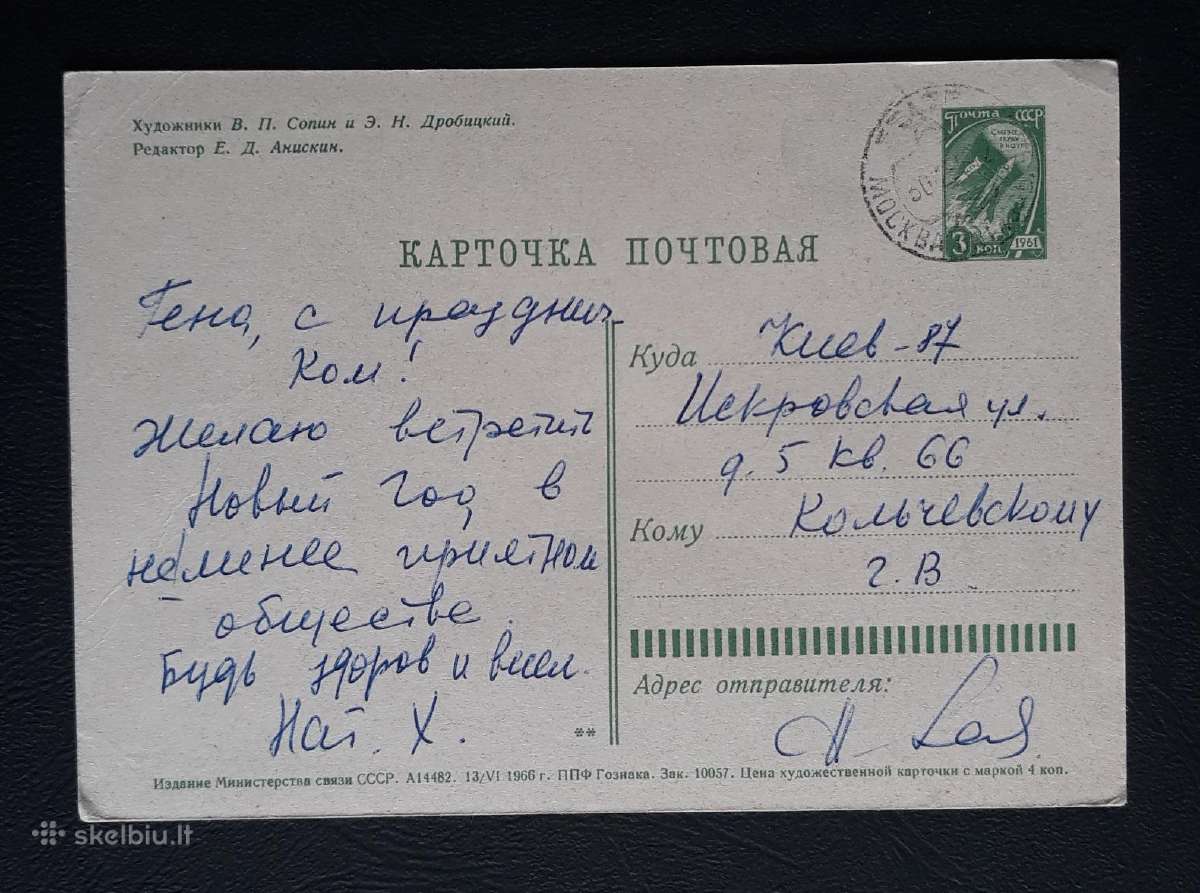 Художники В. П. Сопин и Э. Н. Дробицкий.
Редактор Е. Д. Анискин.
Почта СССР
3 коп 1961
МОСКВА
КАРТОЧКА ПОЧТОВАЯ
Гена, с празднич
ком!
Желаю встретить
Новый Год в
не менее приятном
обществе.
Будь здоров и весел.
Нат. Х.
**
Куда Киев-87
Искровская ул.
д. 5 кв. 66
Кому Кольчевскому
г. В
Адрес отправителя:
Издание Министерства связи СССР. А14482. 13/VI 1966 г. ППФ Гознака. Зак. 10057. Цена художественной карточки с маркой 4 коп.
skelbiu.lt